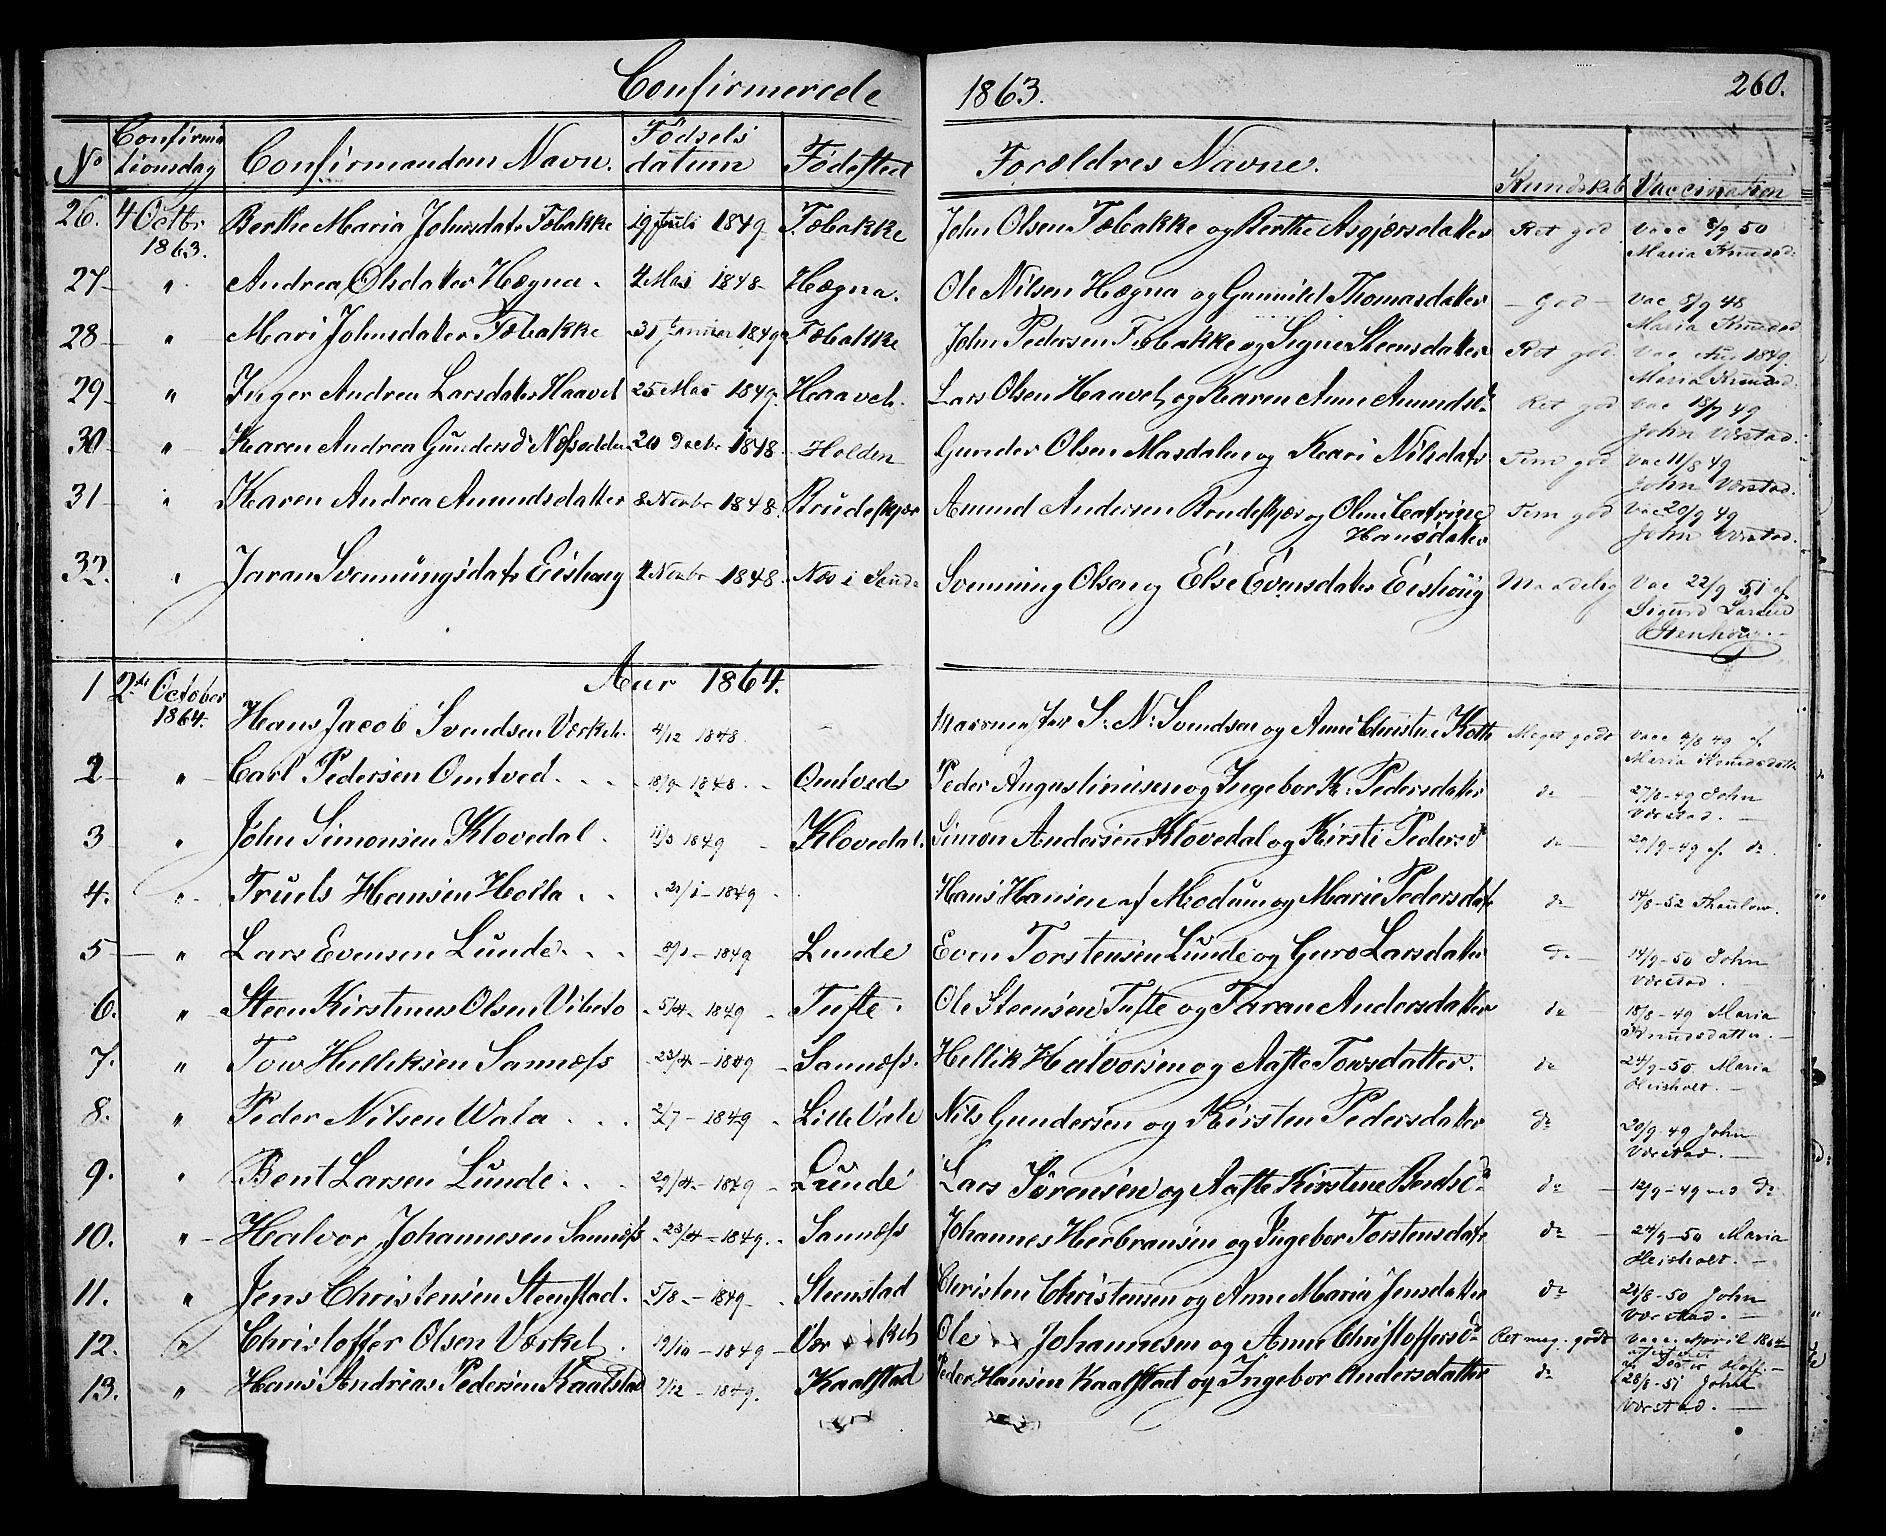 Confirmerede 1863. 260.
No Confirmationsdag Confirmandens Navn. Fødselsdatum Fødested Forældres Navne. Kundskab Vaccination
26. 4 Octbr 1863. Berthe Maria Johnsdatr Fæbakke 19 Juli 1849 Fæbakke John Olsen Fæbakke og Berthe Asgjersdatter Ret god Vacc 8/9 50 Maria Knudsd.
27 " Andrea Olsdatter Hægna. 4 Mai 1848 Hægna. Ole Nilsen Hægna og Gunnild Thomasdatter God Vac 8/9 48 Maria Knudsd
28 " Mari Johnsdatter Fæbakke 31 Januar 1849 Fæbakke John Pedersen Fæbakke og Signe Steensdatter Ret god Vac Aug 1849. Maria Knudsd.
29 " Inger Andrea Larsdatter Haavet 25 Mai 1849. Haavet. Lars Olsen Haavet og Karen Anne Amundsd. Ret god Vac 18/9 49 John Værstad.
30 " Karen Andrea Gundersd. 20 Decbr 1848. Holden Gunder Olsen Masdalen og Kari Nilsdatr Tem god Vac 11/8 49 John Værstad.
31 " Karen Andrea Amundsdatter 8 Novbr 1848. Brudeskjær Amund Andersen Brudeskjær og Oline Catrine Hansdatter Tem god Vac 20/9 49 John Værstad.
32. " Jaran Svennungsdatr Eishoug 2 Novbr 1848. Næs i Sende Svenning Olsen og Else Evensdatter Eishoug Maadelig Vac 22/9 51 af Sigurd Larsen Stenhoug.
Aar 1864.
1 2den October 1864. Hans Jacob Svendsen Værket. 4/12 1848. S. N. Svendsen og Anne Christine Meget godt Vacc 4/8 49 af Maria Knudsdatt
2 " Carl Pedersen Omtved. 18/9 1848. Omtved Peder Augustinusen og Ingebor K. Pedersdatter do 27/8-49 John Værstad.
3 " John Simonsen Klovedal. 11/3 1849 Klovedal. Simon Andersen Klovedal og Kirsti Pedersd do 29/9-49 af do.
4. " Truels Hansen Holta 21/1-1849 Hans Hansen af Modum og Marie Pedersdatr do 14/8-52 Thaulow.
5 " Lars Evensen Lunde. 8/1-1849 Lunde Even Torstensen Lunde og Guro Larsdatter do 14/9-50 John Værstad.
6. " Steen Kirstinus Olsen Vibeto 5/4-1849 Tufte. Ole Steensen Tufte og Taran Andersdatter do 18/8-49 Maria Knudsdatter.
7. " Tow Helliksen Sannæss 23/4-1849 Sannæss. Hellik Halvorsen og Aafte Towsdatter. do 24/9-50 Maria Heisholt.
8. " Peder Nilsen Wala 2/7-1849 Lille Vale Nils Gundersen og Kirsten Pedersdatter do 20/9-49 John Værstad.
9. " Bent Larsen Lunde. 29/4-1849 Lunde Lars Sørensen og Aafte Kirstine Bendsd. do 12/9-49 ved do
10. " Halvor Johannesen Sannæss 23/4-1849. Sannæss Johannes Herbransen og Ingebor Torstensdatr do 24/9-50 Maria Heisholt.
11. " Jens Christensen Steenstad. 5/8-1849 Steenstad Christen Christensen og Anne Maria Jensdatter do 21/8-50 John Værstad.
12. " Christoffer Olsen Værket. 19/10-1849 Værket Ole Johannesen og Anne Christoffersd. Ret meg. godt Vacc. April 1864
13. " Hans Andreas Pedersen Kaalstad 7/12-1849. Kaalstad Peder Hansen Kaalstad og Ingebor Andersdatter do 28/8-51 John Værstad.